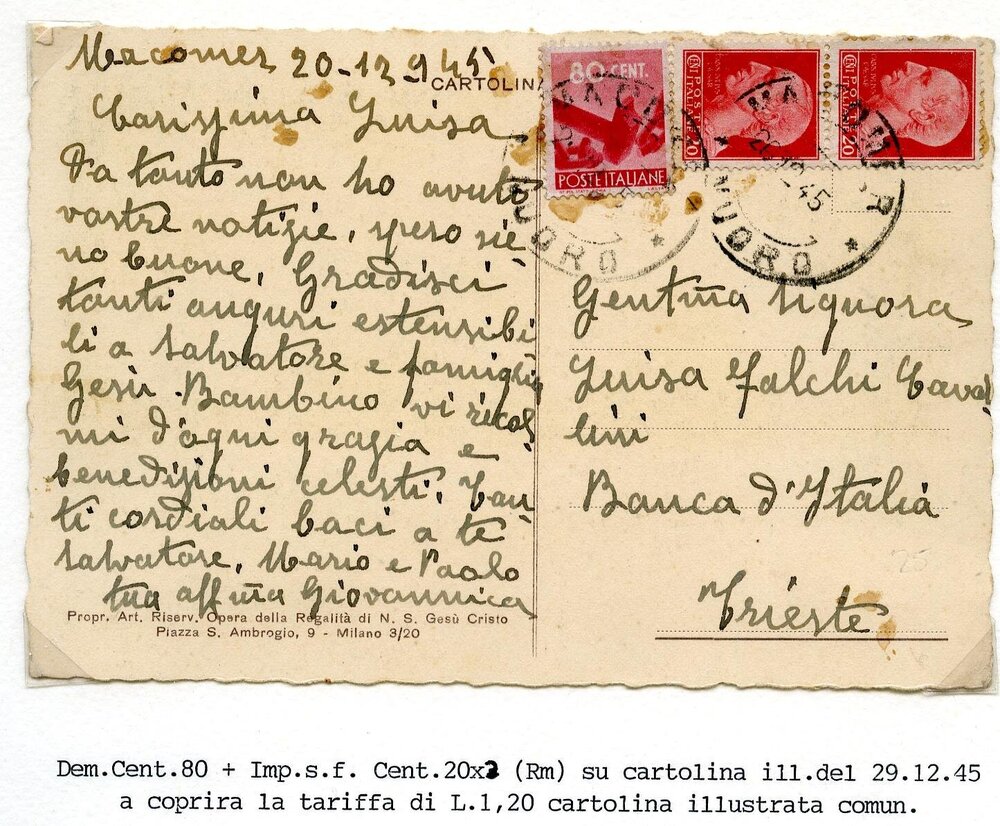 Macomer 20-12-945
CARTOLINA
Carissima Luisa
Da tanto non ho avuto
vostre notizie, spero sie
no buone. Gradisci
tanti auguri estensibi
li a Salvatore e famiglia
Gesù Bambino vi ricol
mi d'ogni grazia e
benedizioni celesti. Tan
ti cordiali baci a te
Salvatore, Mario e Paolo
tua affma Giovannica
Propr. Art. Riserv. Opera della Regalità di N. S. Gesù Cristo
Piazza S. Ambrogio, 9 - Milano 3/20
80 CENT.
POSTE ITALIANE
CENT 20
POSTE ITALIANE
CENT 20
POSTE ITALIANE
MACOMER
NUORO
MACOMER
20.12.45
NUORO
Gentma Signora
Luisa Falchi Caval
lini
Banca d'Italia
Trieste
25
Dem.Cent.80 + Imp.s.f. Cent.20x2 (Rm) su cartolina ill.del 29.12.45
a coprira la tariffa di L.1,20 cartolina illustrata comun.